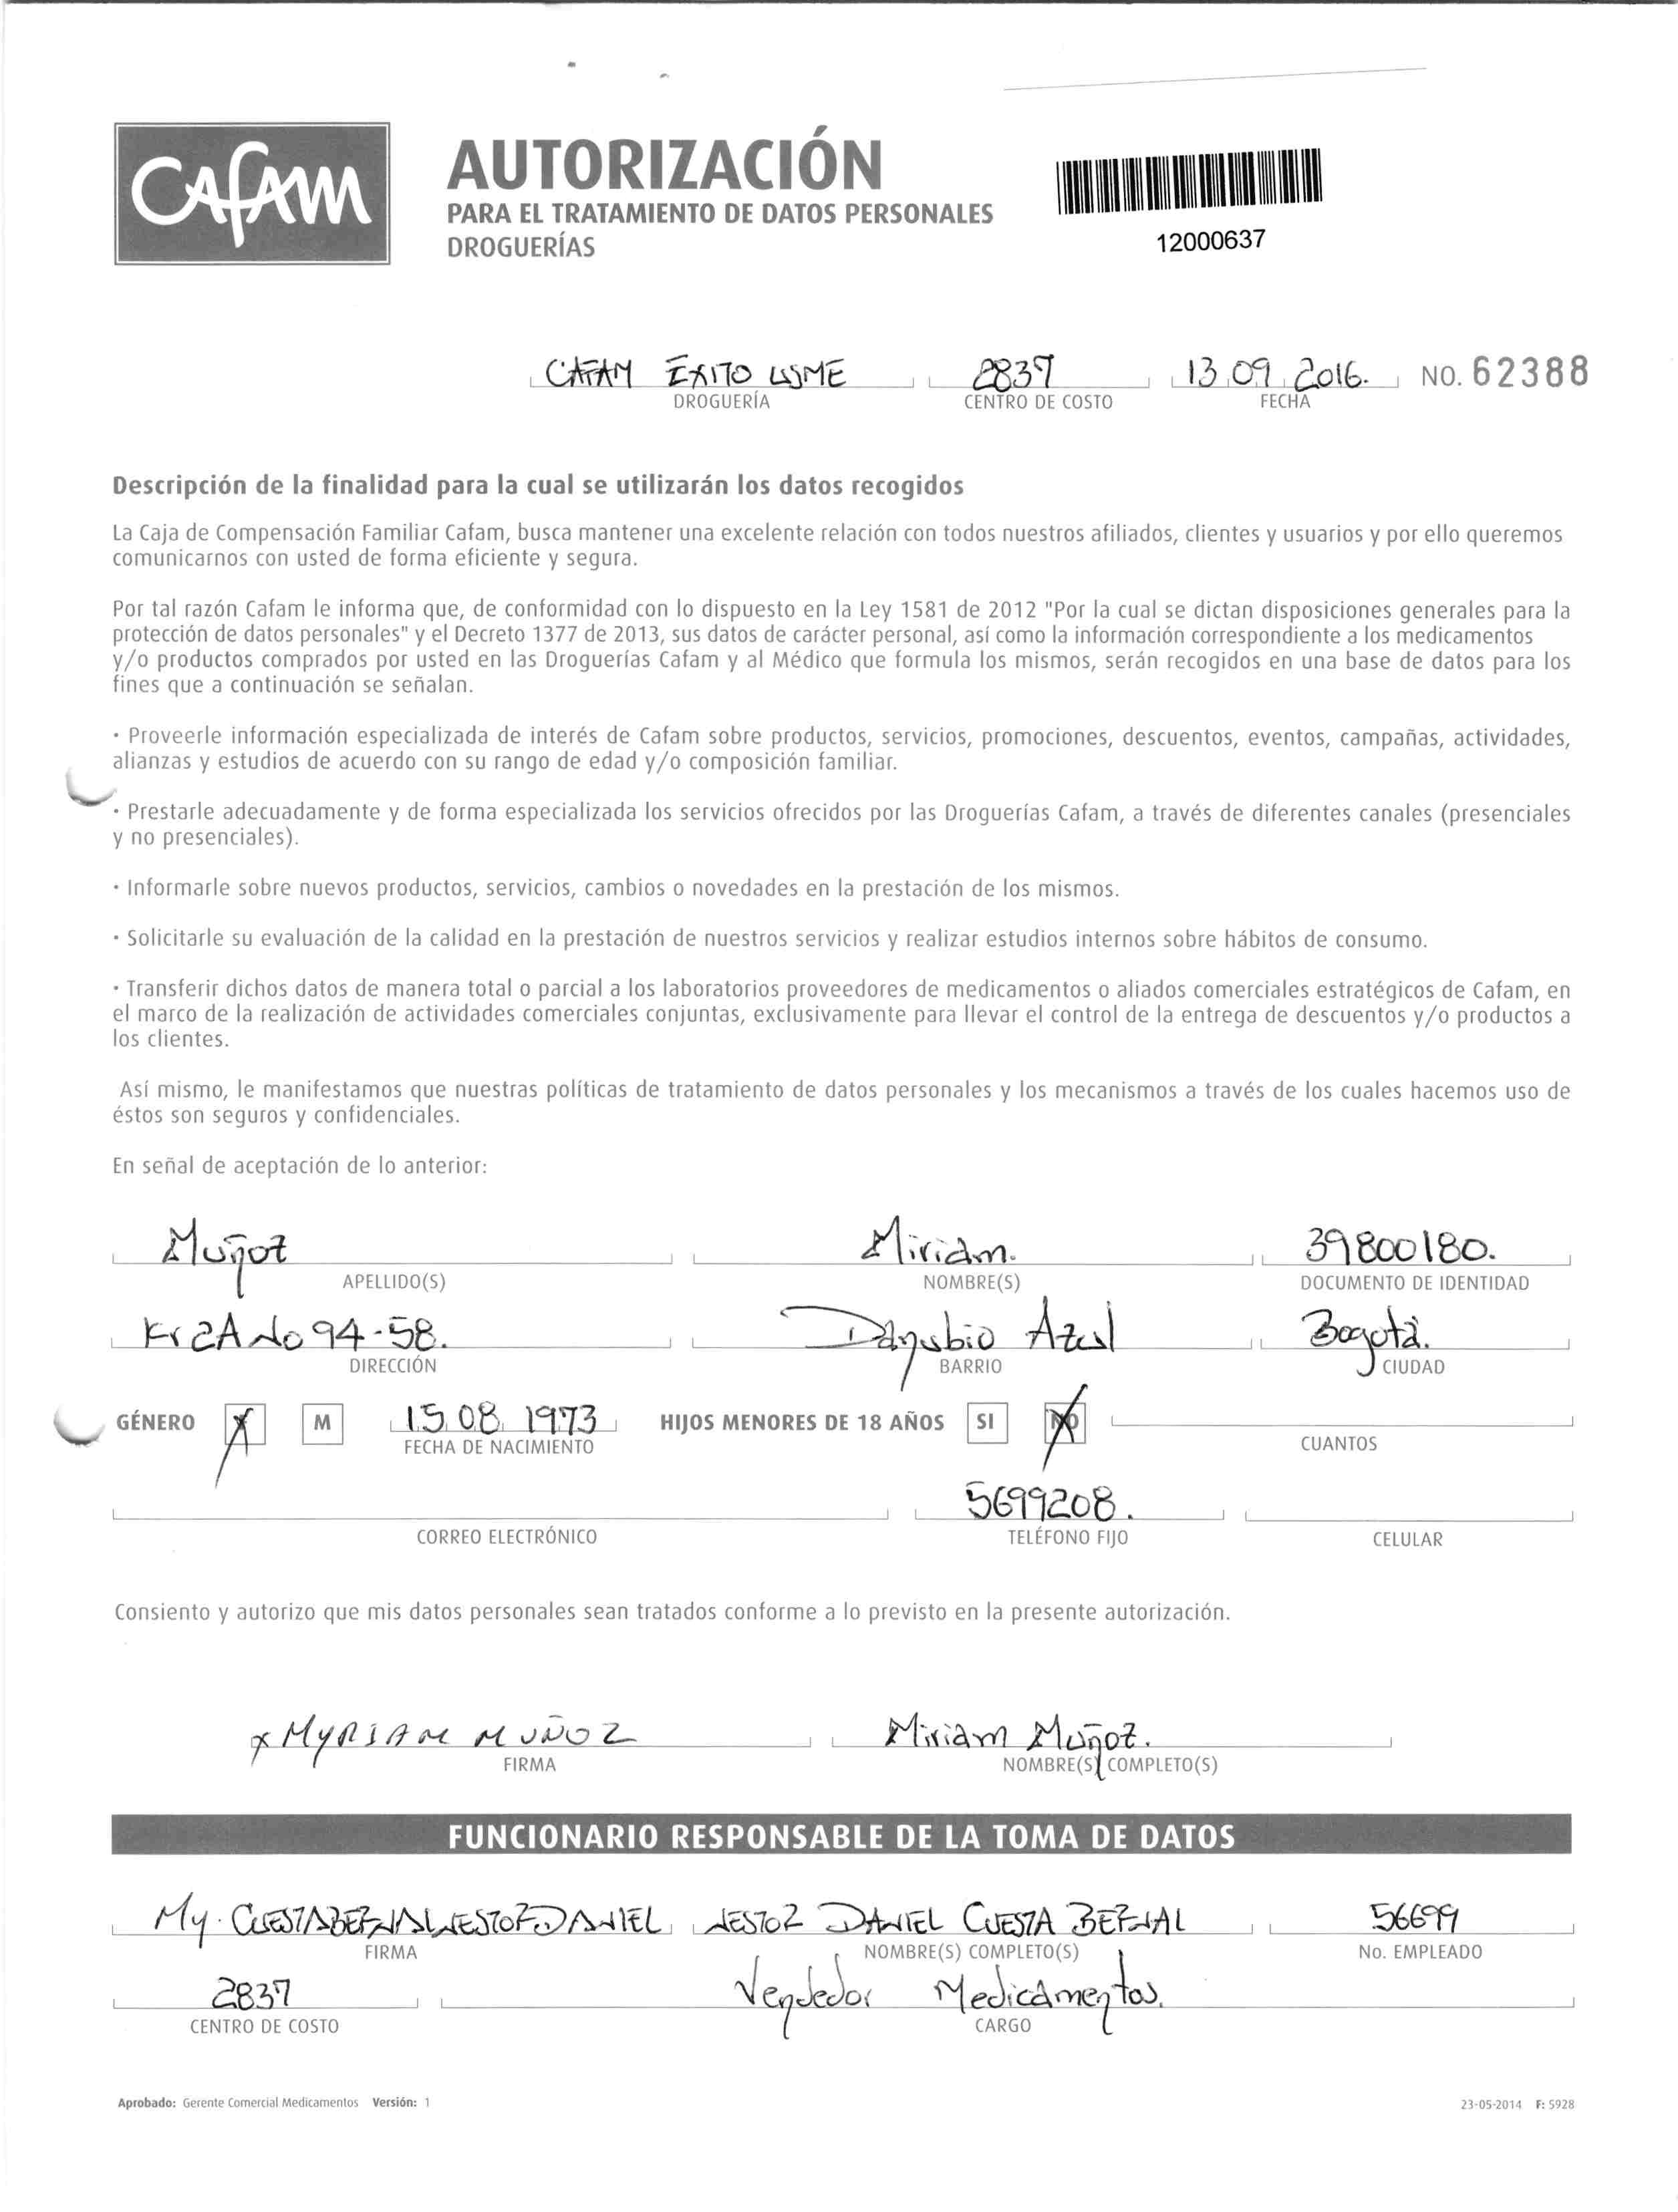 CAFAM
AUTORIZACIÓN
PARA EL TRATAMIENTO DE DATOS PERSONALES
DROGUERÍAS
12000637
CAFAM EXITO USME 2837 13 09 2016. NO. 62388
DROGUERÍA CENTRO DE COSTO FECHA
Descripción de la finalidad para la cual se utilizarán los datos recogidos
La Caja de Compensación Familiar Cafam, busca mantener una excelente relación con todos nuestros afiliados, clientes y usuarios y por ello queremos
comunicarnos con usted de forma eficiente y segura.
Por tal razón Cafam le informa que, de conformidad con lo dispuesto en la Ley 1581 de 2012 "Por la cual se dictan disposiciones generales para la
protección de datos personales" y el Decreto 1377 de 2013, sus datos de carácter personal, así como la información correspondiente a los medicamentos
y/o productos comprados por usted en las Droguerías Cafam y al Médico que formula los mismos, serán recogidos en una base de datos para los
fines que a continuación se señalan.
· Proveerle información especializada de interés de Cafam sobre productos, servicios, promociones, descuentos, eventos, campañas, actividades,
alianzas y estudios de acuerdo con su rango de edad y/o composición familiar.
· Prestarle adecuadamente y de forma especializada los servicios ofrecidos por las Droguerías Cafam, a través de diferentes canales (presenciales
y no presenciales).
· Informarle sobre nuevos productos, servicios, cambios o novedades en la prestación de los mismos.
· Solicitarle su evaluación de la calidad en la prestación de nuestros servicios y realizar estudios internos sobre hábitos de consumo.
· Transferir dichos datos de manera total o parcial a los laboratorios proveedores de medicamentos o aliados comerciales estratégicos de Cafam, en
el marco de la realización de actividades comerciales conjuntas, exclusivamente para llevar el control de la entrega de descuentos y/o productos a
los clientes.
Así mismo, le manifestamos que nuestras políticas de tratamiento de datos personales y los mecanismos a través de los cuales hacemos uso de
éstos son seguros y confidenciales.
En señal de aceptación de lo anterior:
Muñoz Miriam. 39800180.
APELLIDO(S) NOMBRE(S) DOCUMENTO DE IDENTIDAD
Kr 2A No 94-58. Danubio Azul Bogotá.
DIRECCIÓN BARRIO CIUDAD
GÉNERO X M 15 08 1973 HIJOS MENORES DE 18 AÑOS SI NO
FECHA DE NACIMIENTO CUANTOS
5699208.
CORREO ELECTRÓNICO TELÉFONO FIJO CELULAR
Consiento y autorizo que mis datos personales sean tratados conforme a lo previsto en la presente autorización.
x MYRIAM MUÑOZ Miriam Muñoz.
FIRMA NOMBRE(S) COMPLETO(S)
FUNCIONARIO RESPONSABLE DE LA TOMA DE DATOS
My. CUESTABERNALNESTORDANIEL NESTOR DANIEL CUESTA BERNAL 56699
FIRMA NOMBRE(S) COMPLETO(S) No. EMPLEADO
2837 Vendedor Medicamentos.
CENTRO DE COSTO CARGO
Aprobado: Gerente Comercial Medicamentos Versión: 1 23-05-2014 F: 5928